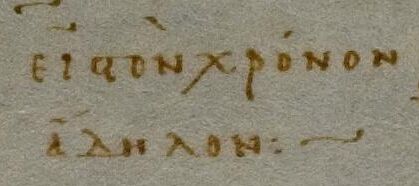 εἰς τὸν χρόνον
ἄδηλον:~